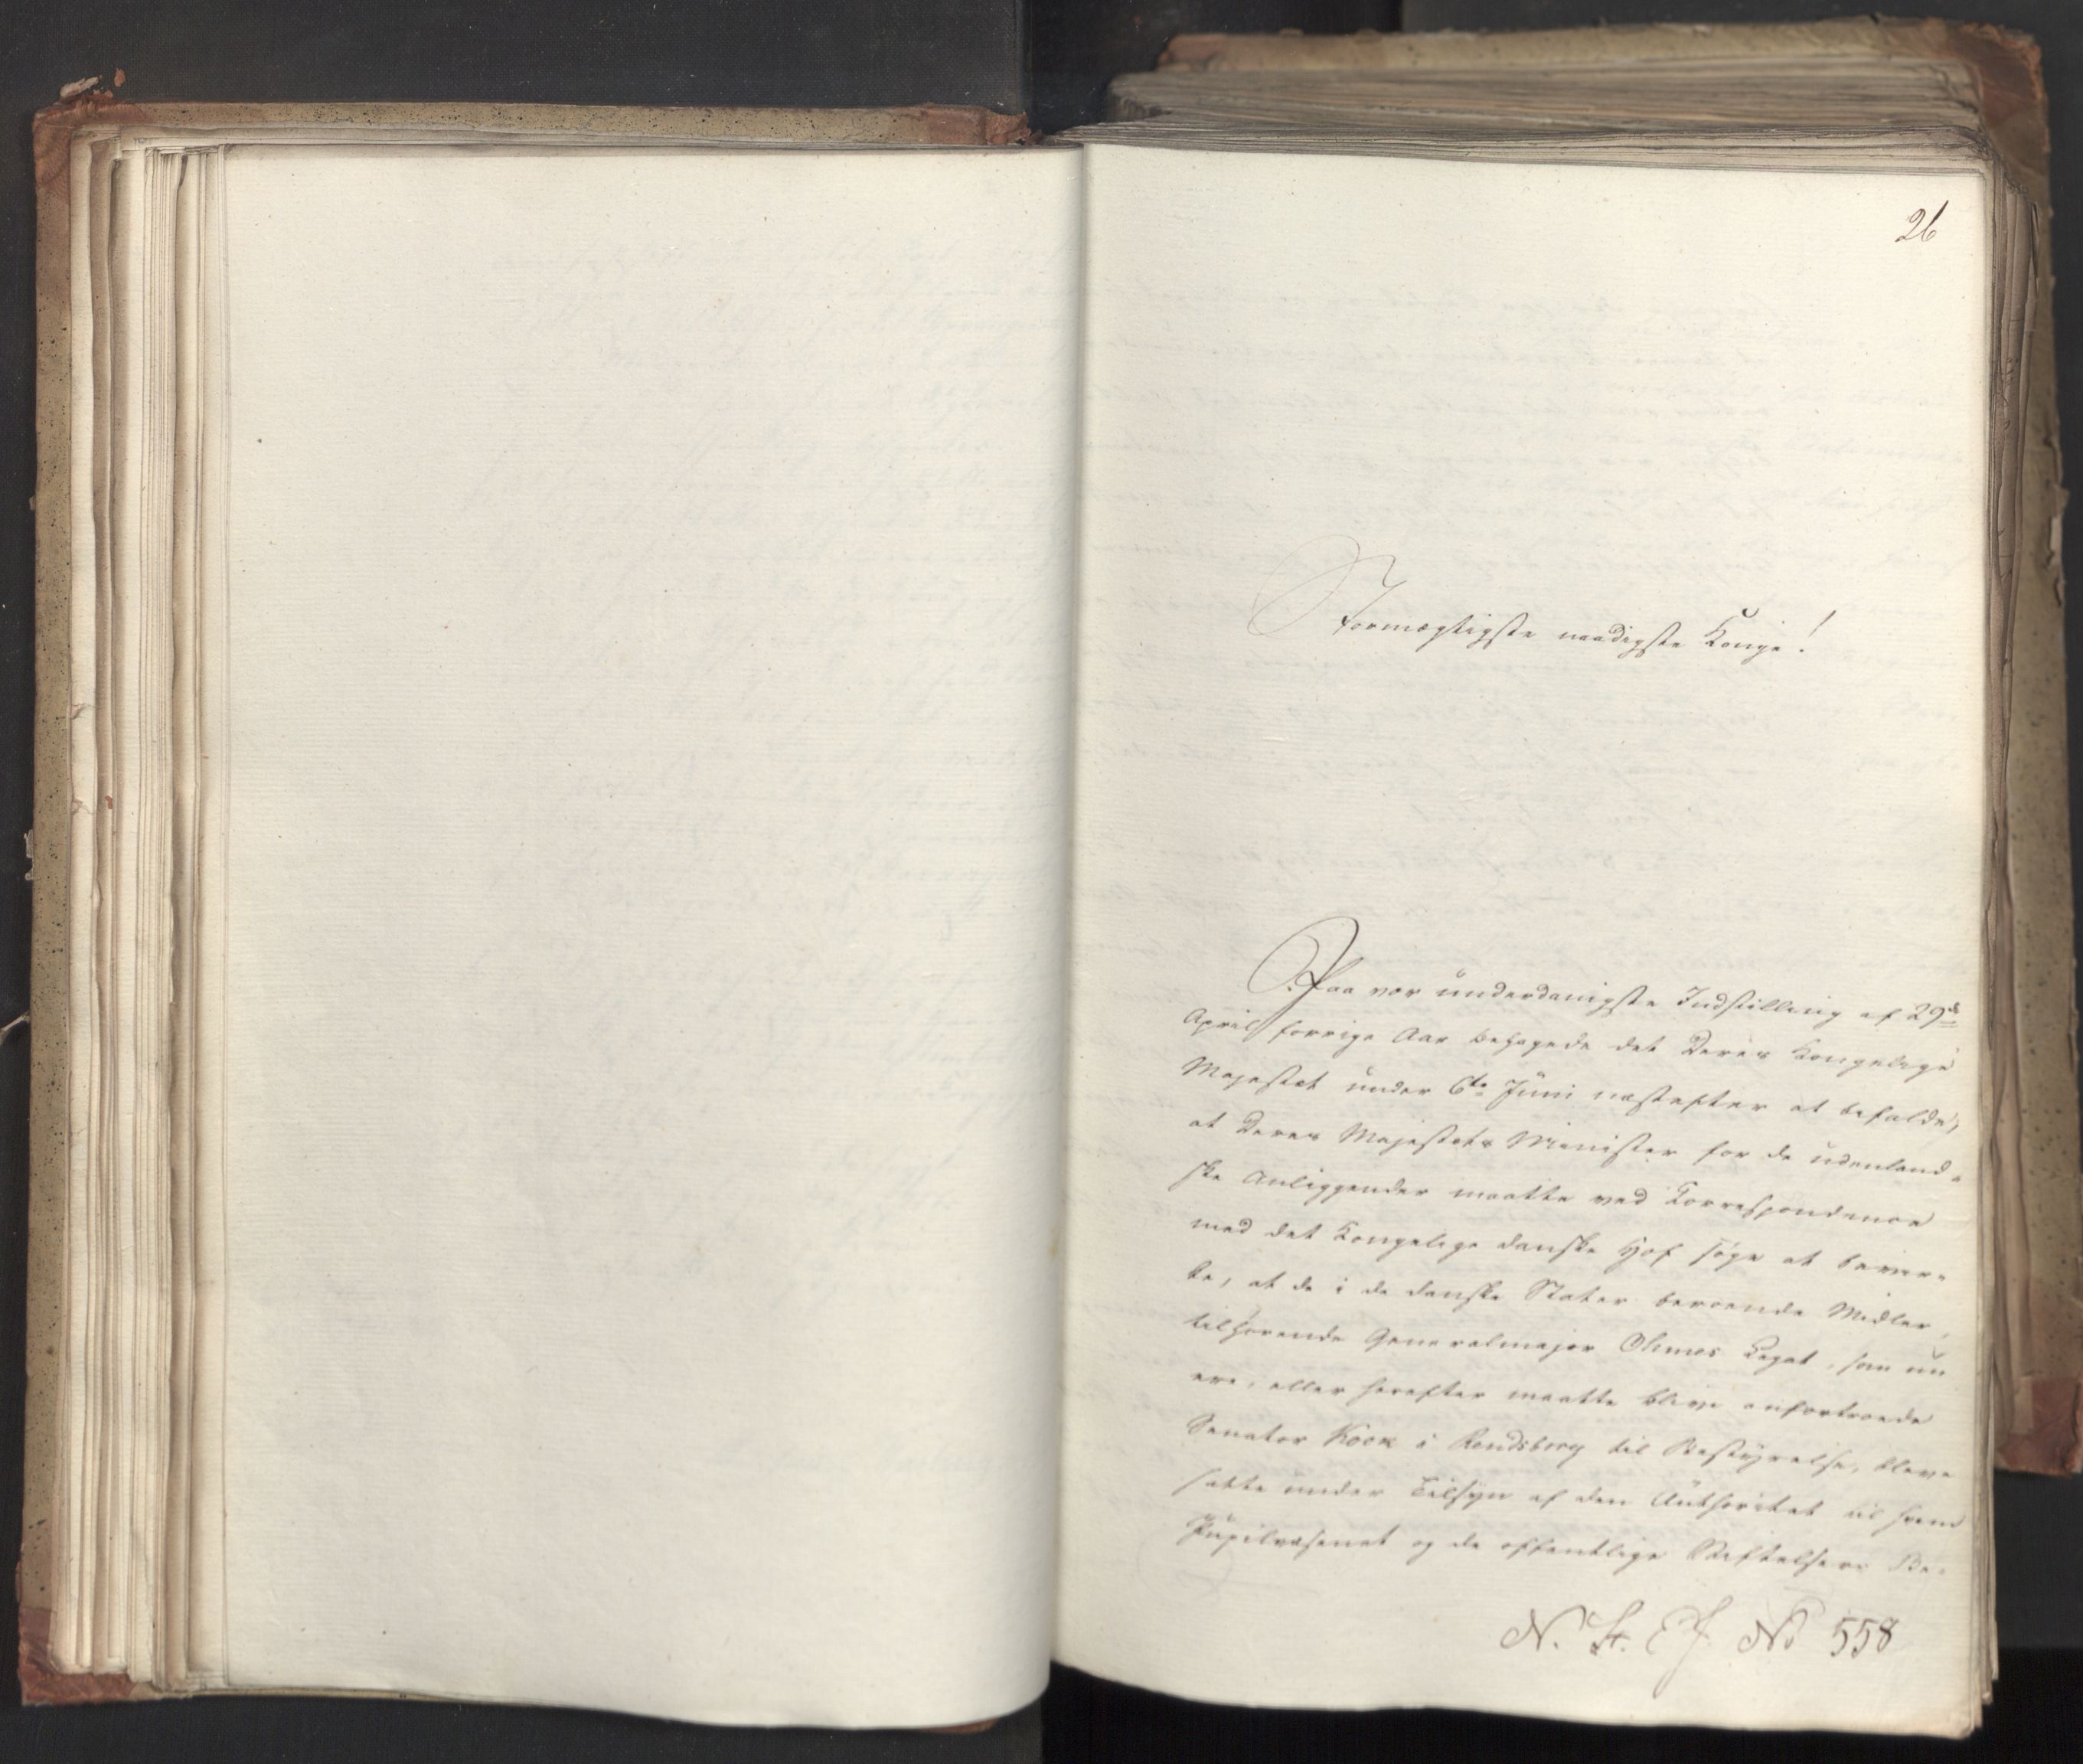 26
Stormægtigste naadigste Konge!
Paa vor underdanigste Indstilling af 29de
April forrige Aar behagede det Deres Kongelige
Majestæt under 6te Juni næstefter at befalde,
at Deres Majestæts Minister for de udenland-
ske Anliggender maatte ved Correspondence
med det Kongelige danske Hof søge at bevir-
ke, at de i de danske Stater beroende Midler,
tilhørende Generalmajor Ohmes Legat, som nu
ere, eller herefter maatte blive anfortroede
Senator Kock i Rendsborg til Bestyrelse, bleve
satte under Tilsyn af den Authoritet til hvem
Pupilvæsenet og de offentlige Stiftelsers Be-
N. St. E J. No 558